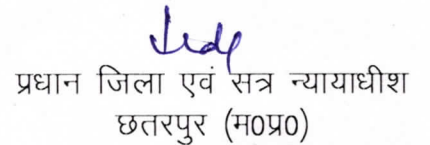 प्रधान जिला एवं सत्र न्यायाधीश
छतरपुर (म0प्र0)